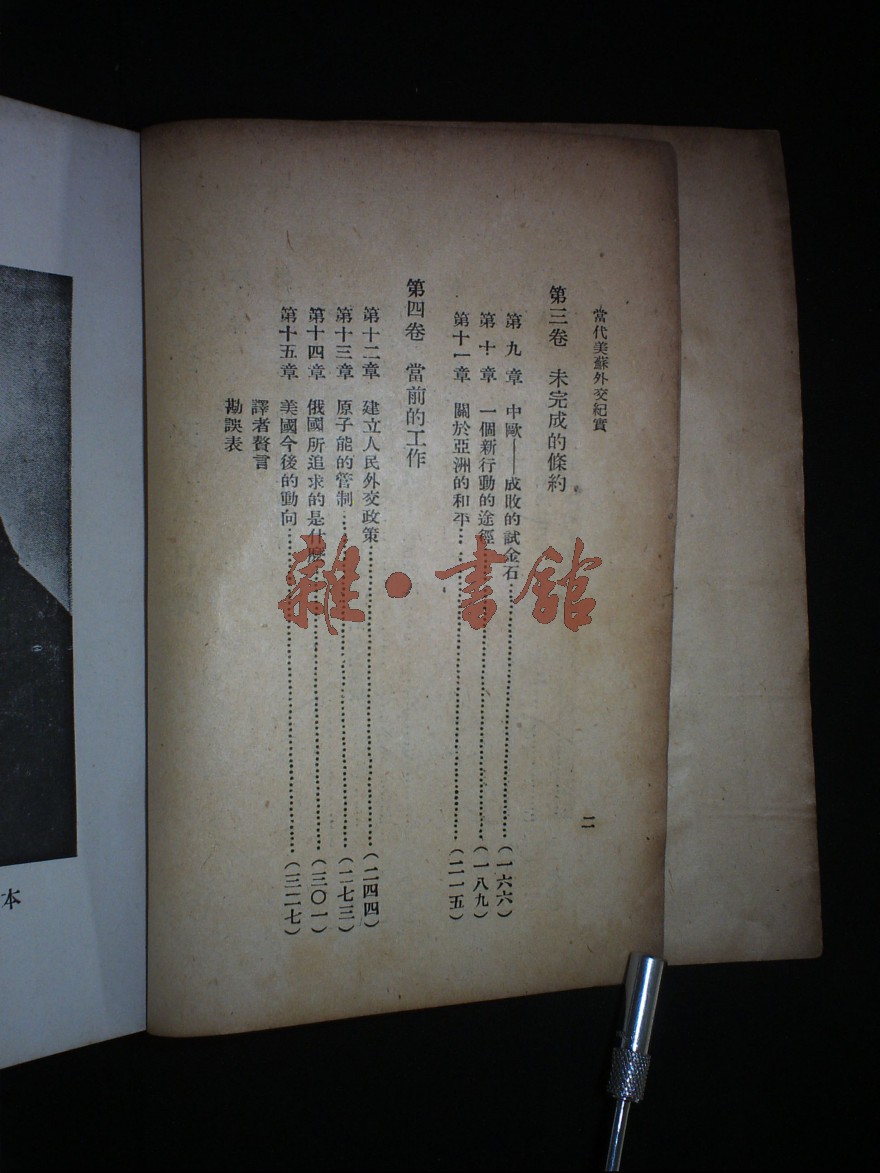 當代美蘇外交紀實
二
第三卷 未完成的條約
第九章 中歐——成敗的試金石……(一六六)
第十章 一個新行動的途徑……(一八九)
第十一章 關於亞洲的和平……(二一五)
第四卷 當前的工作
第十二章 建立人民外交政策……(二四四)
第十三章 原子能的管制……(二七三)
第十四章 俄國所追求的是什麼……(三〇一)
第十五章 美國今後的動向……(三二七)
譯者贅言
勘誤表
本
雜·書館